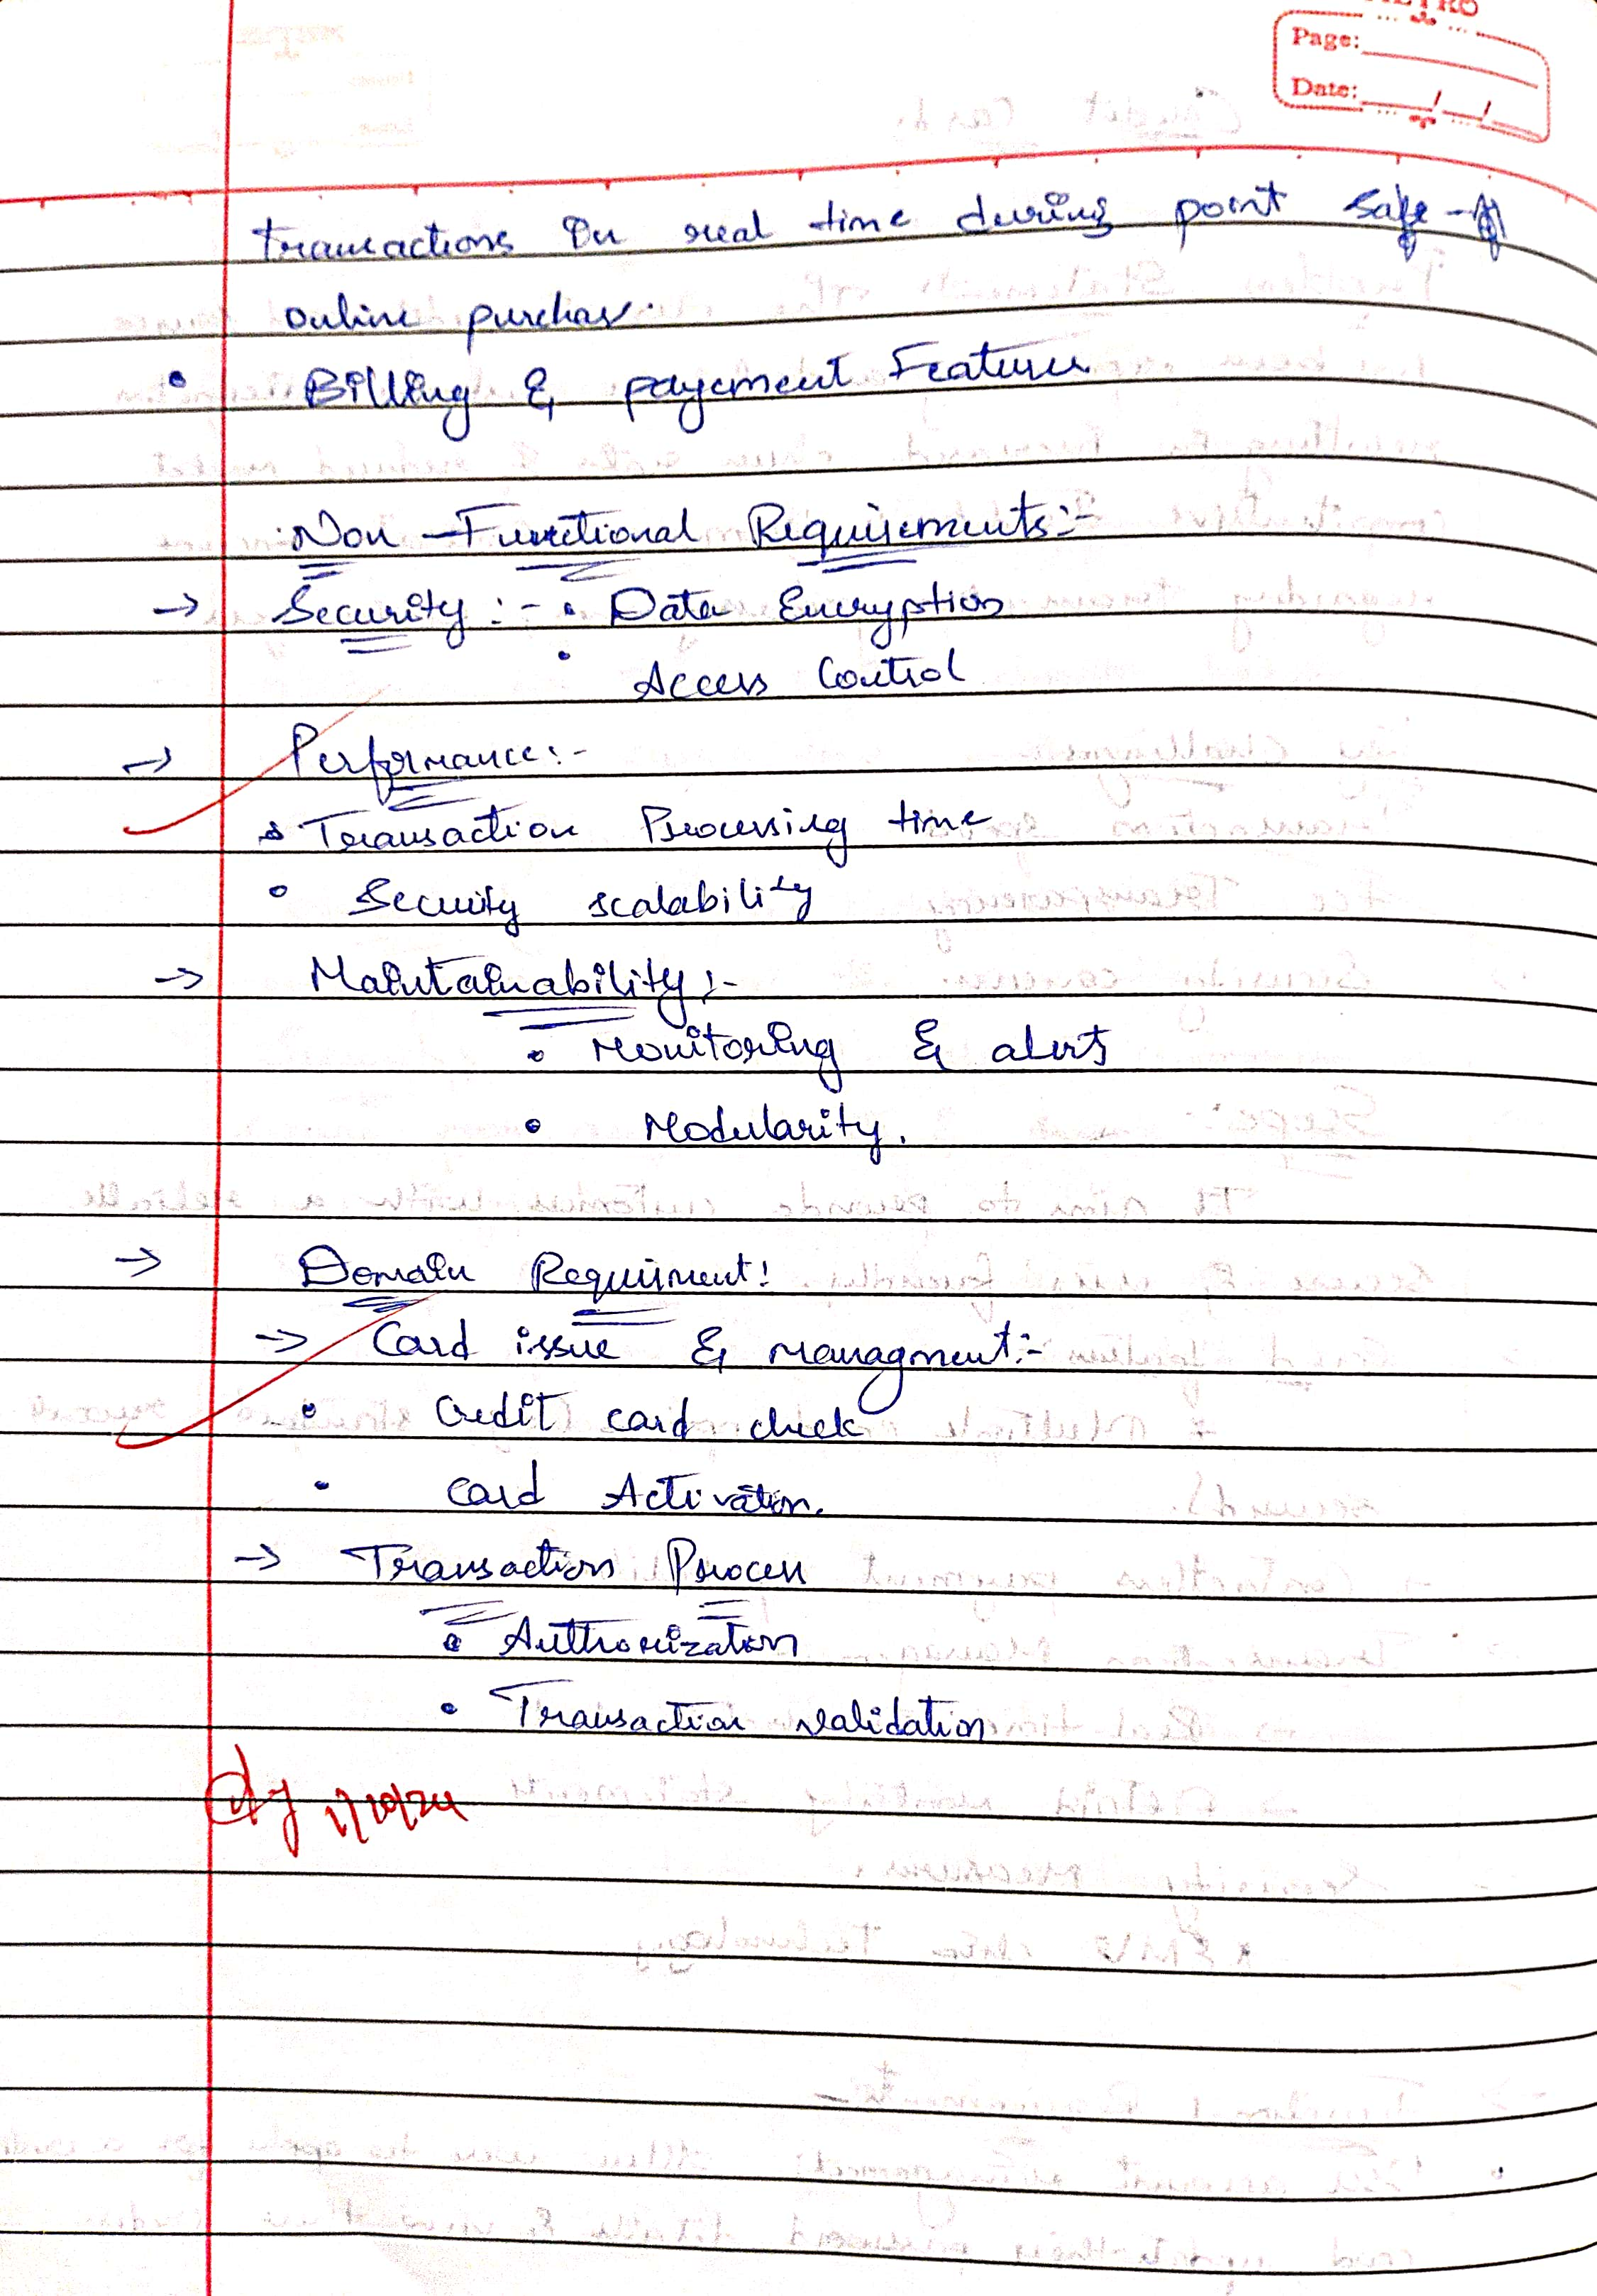 Page:
Date:
transactions in real time during point safe -
online purchas.
• Billing & payement Features
Non - Functional Requirements:-
→ Security :- • Data Encryption
• Access Control
→ Performance:-
• Transaction Processing time
• Security scalability
→ Maintainability:-
• Monitoring & alerts
• Modularity.
→ Domain Requirment:
→ Card issue & managment:-
• Credit card check
• Card Activation.
→ Transaction Process
• Authorization
• Transaction validation
1/10/24